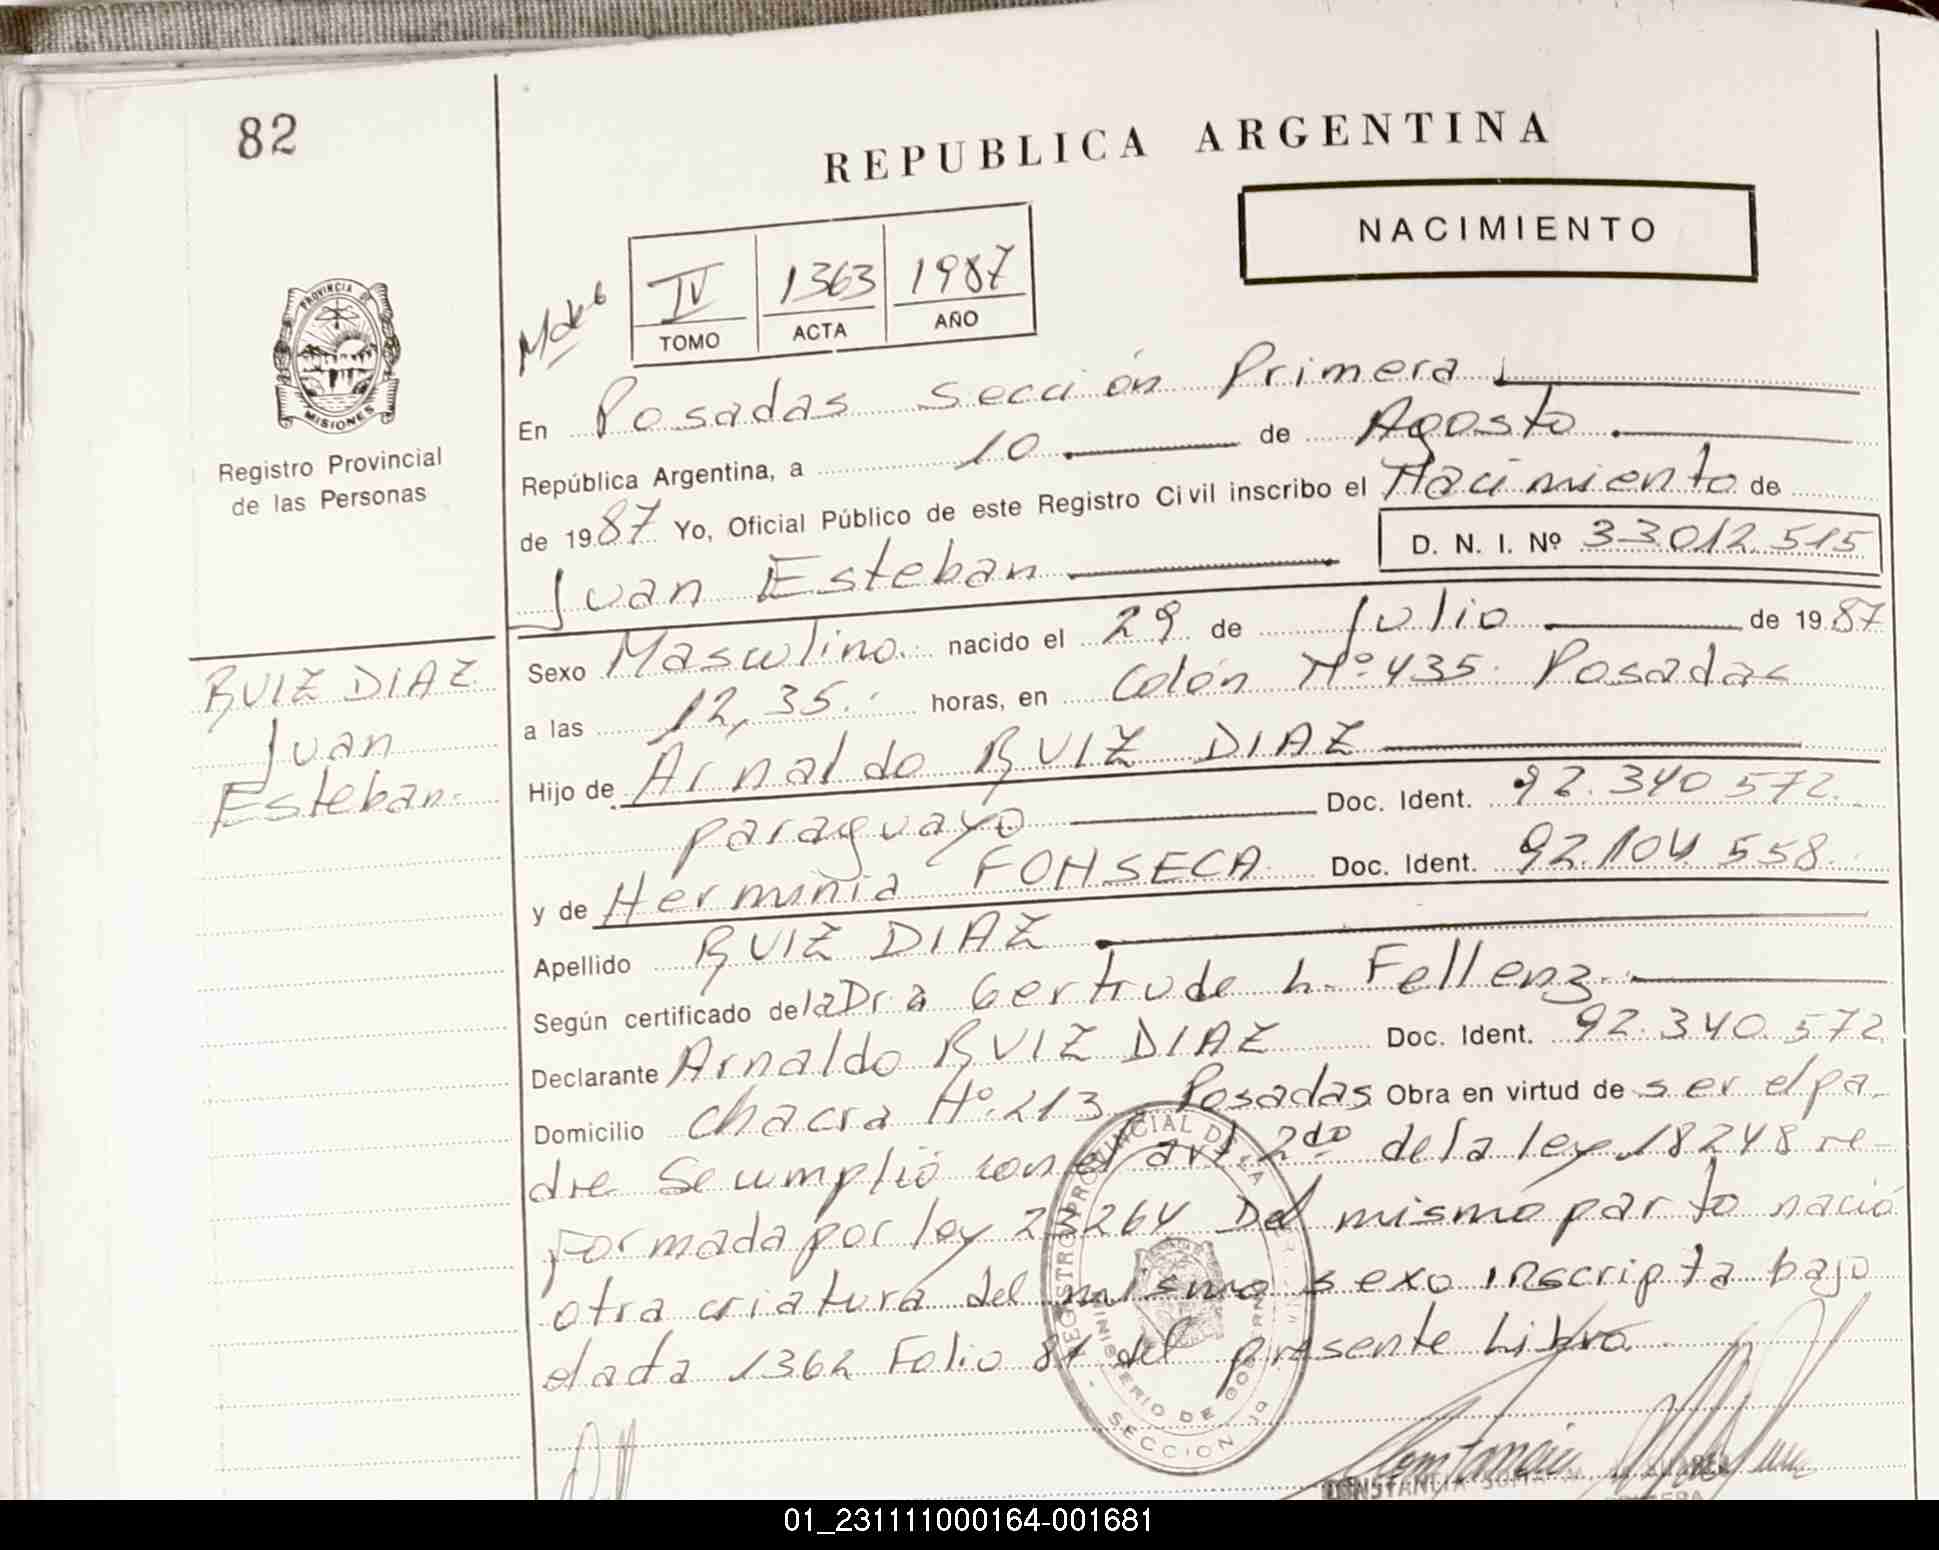 82
REPUBLICA ARGENTINA
NACIMIENTO
IV 1363 1987
TOMO ACTA AÑO
PROVINCIA DE
MISIONES
Registro Provincial
de las Personas
En Posadas sección Primera
República Argentina, a 10 de Agosto
de 1987 Yo, Oficial Público de este Registro Civil inscribo el Nacimiento de
D. N. I. Nº 33.012.515
Juan Esteban
Sexo Masculino. nacido el 29 de Julio de 1987
a las 12,35. horas, en Colón Nº 435. Posadas
RUIZ DIAZ
Juan
Esteban.
Hijo de Arnaldo RUIZ DIAZ
paraguayo Doc. Ident. 92.340.572.
y de Herminia FONSECA Doc. Ident. 92.104.558.
Apellido RUIZ DIAZ
Según certificado de la Dra Gertrude L. Fellenz.
Declarante Arnaldo RUIZ DIAZ Doc. Ident. 92.340.572
Domicilio Chacra Nº 213 Posadas Obra en virtud de ser el pa-
dre Se cumplió con el art 2do de la ley 18248 re-
formada por ley 23264 Del mismo parto nació
otra criatura del mismo sexo inscripta bajo
el acta 1362 Folio 81 del presente Libro.
REGISTRO PROVINCIAL DE LAS
MINISTERIO DE GOBIERNO
SECCION 1a
CONSTANCIA
01_231111000164-001681